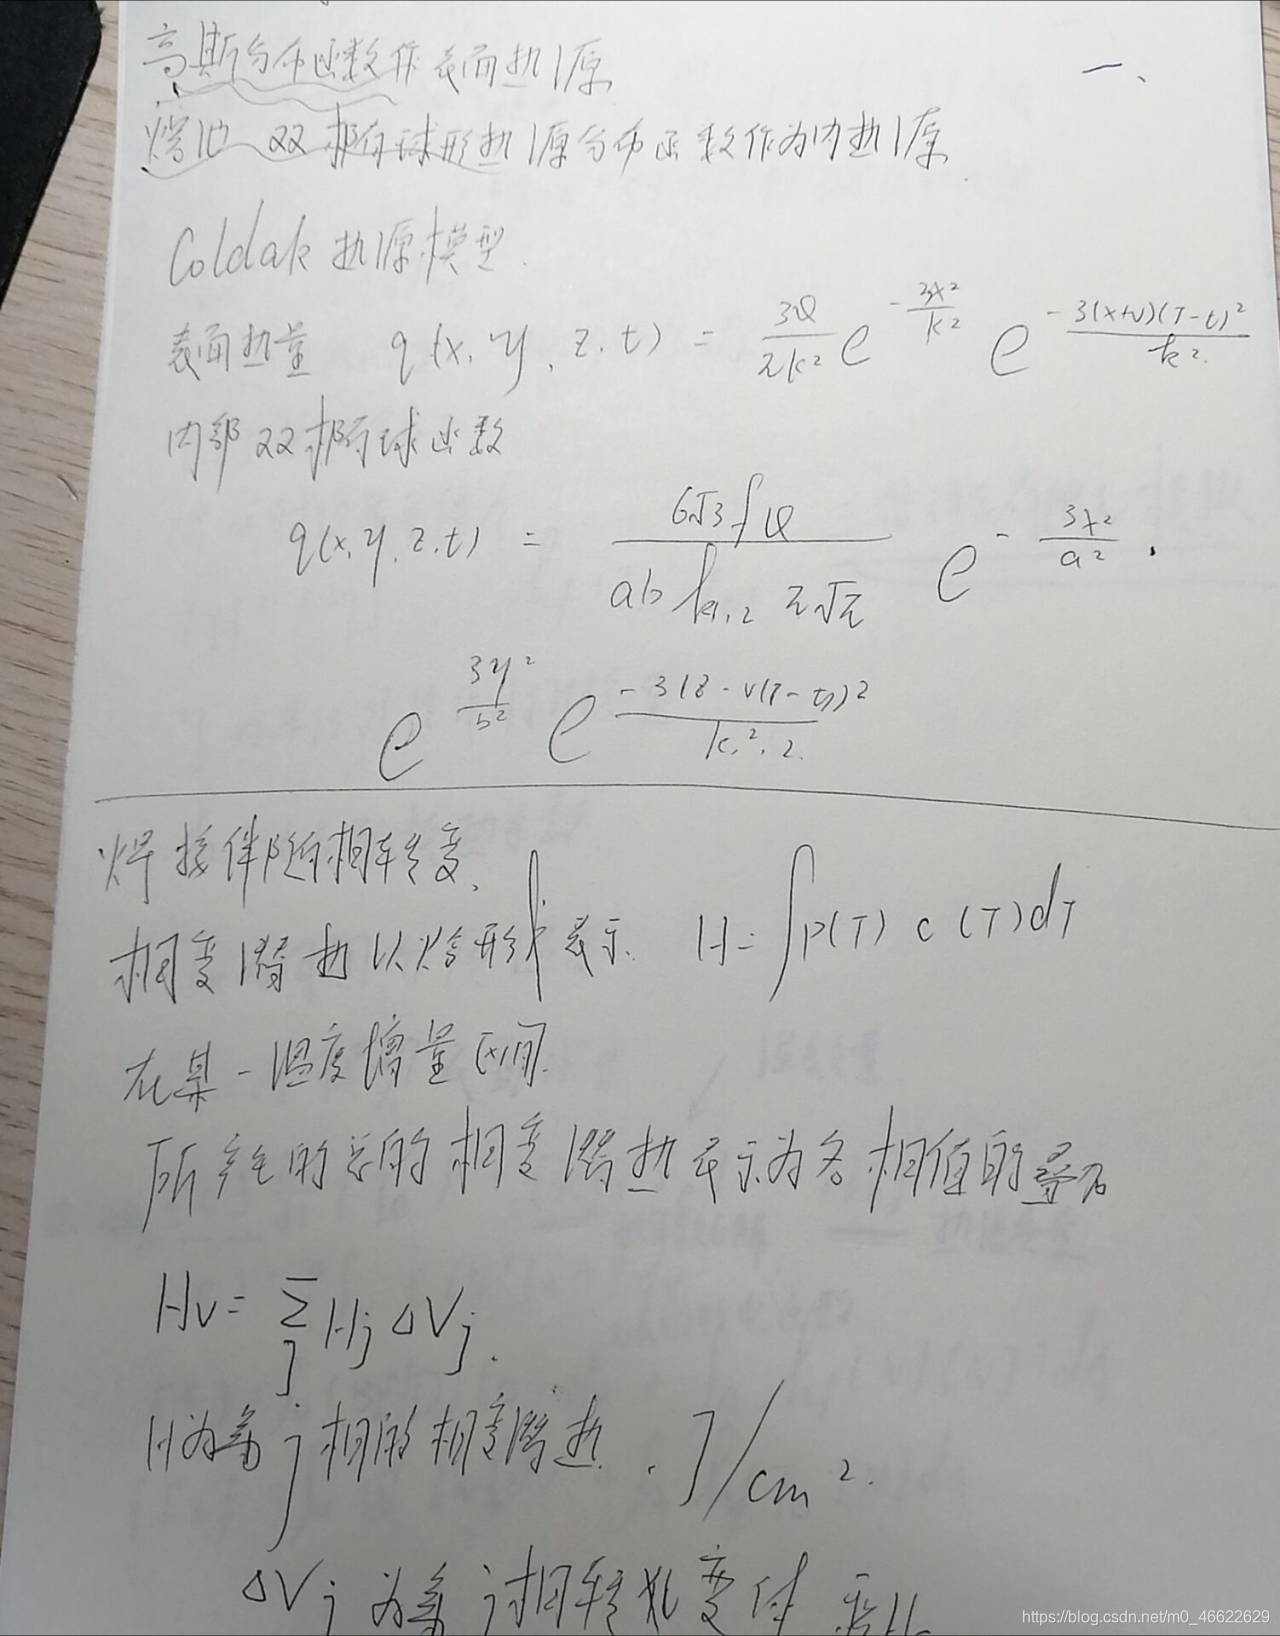 高斯分布函数作表面热源
一、
熔池 双椭球形热源分布函数作为内热源
Coldak 热源模型.
表面热量 q(x, y, z, t) = 3Q/πk² e^(-3x²/k²) e^(-3(x+v)(T-t)²/k²)
内部双椭球函数
q(x, y, z, t) = 6√3fQ/(abk₁,₂π√π) e^(-3x²/a²) ·
e^(3y²/b²) e^(-3(z-v(T-t))²/k₁²,₂)
焊接伴随相转变,
相变潜热以焓形式表示. H=∫ρ(T) c(T)dT
在某一温度增量区间.
所产生的总的相变潜热表示为各相值的叠加
Hv = ∑j Hj ΔVj.
H为第j相的相变潜热. J/cm².
ΔVj 为第j相转化变体
https://blog.csdn.net/m0_46622629